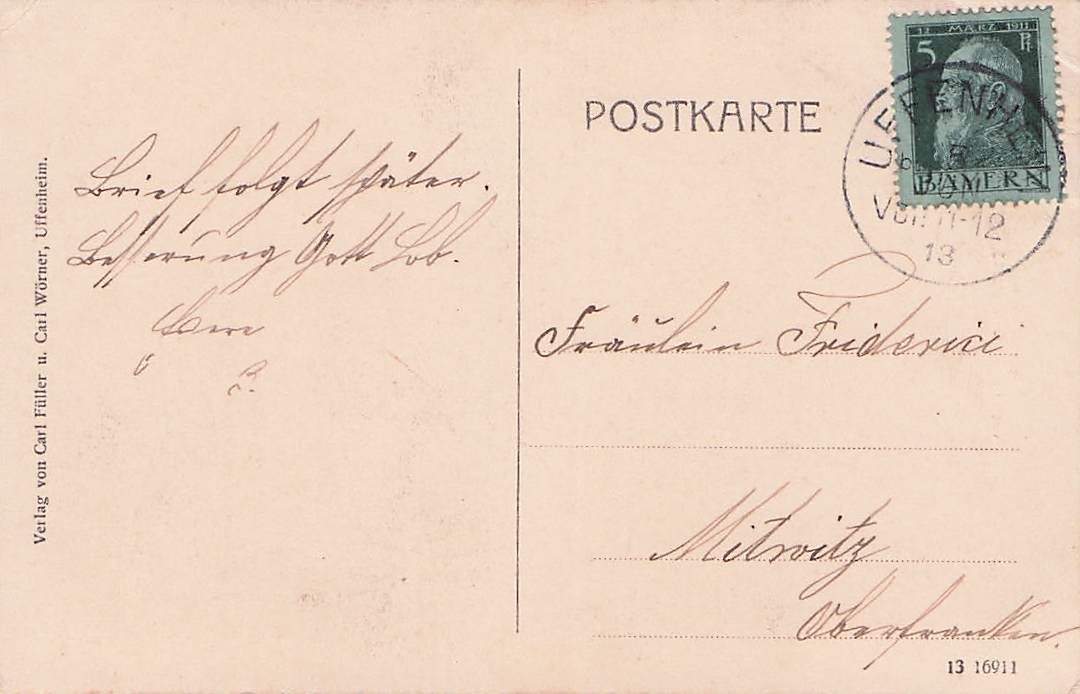 Verlag von Carl Füller u. Carl Wörner, Uffenheim.
Brief folgt später.
Besserung Gott Lob.
POSTKARTE
12. MÄRZ 1911
5 Pf
BAYERN
UFFENHEI
Vorm 11-12
13
Fräulein Friderici
Mitwitz
Oberfranken.
13 16911